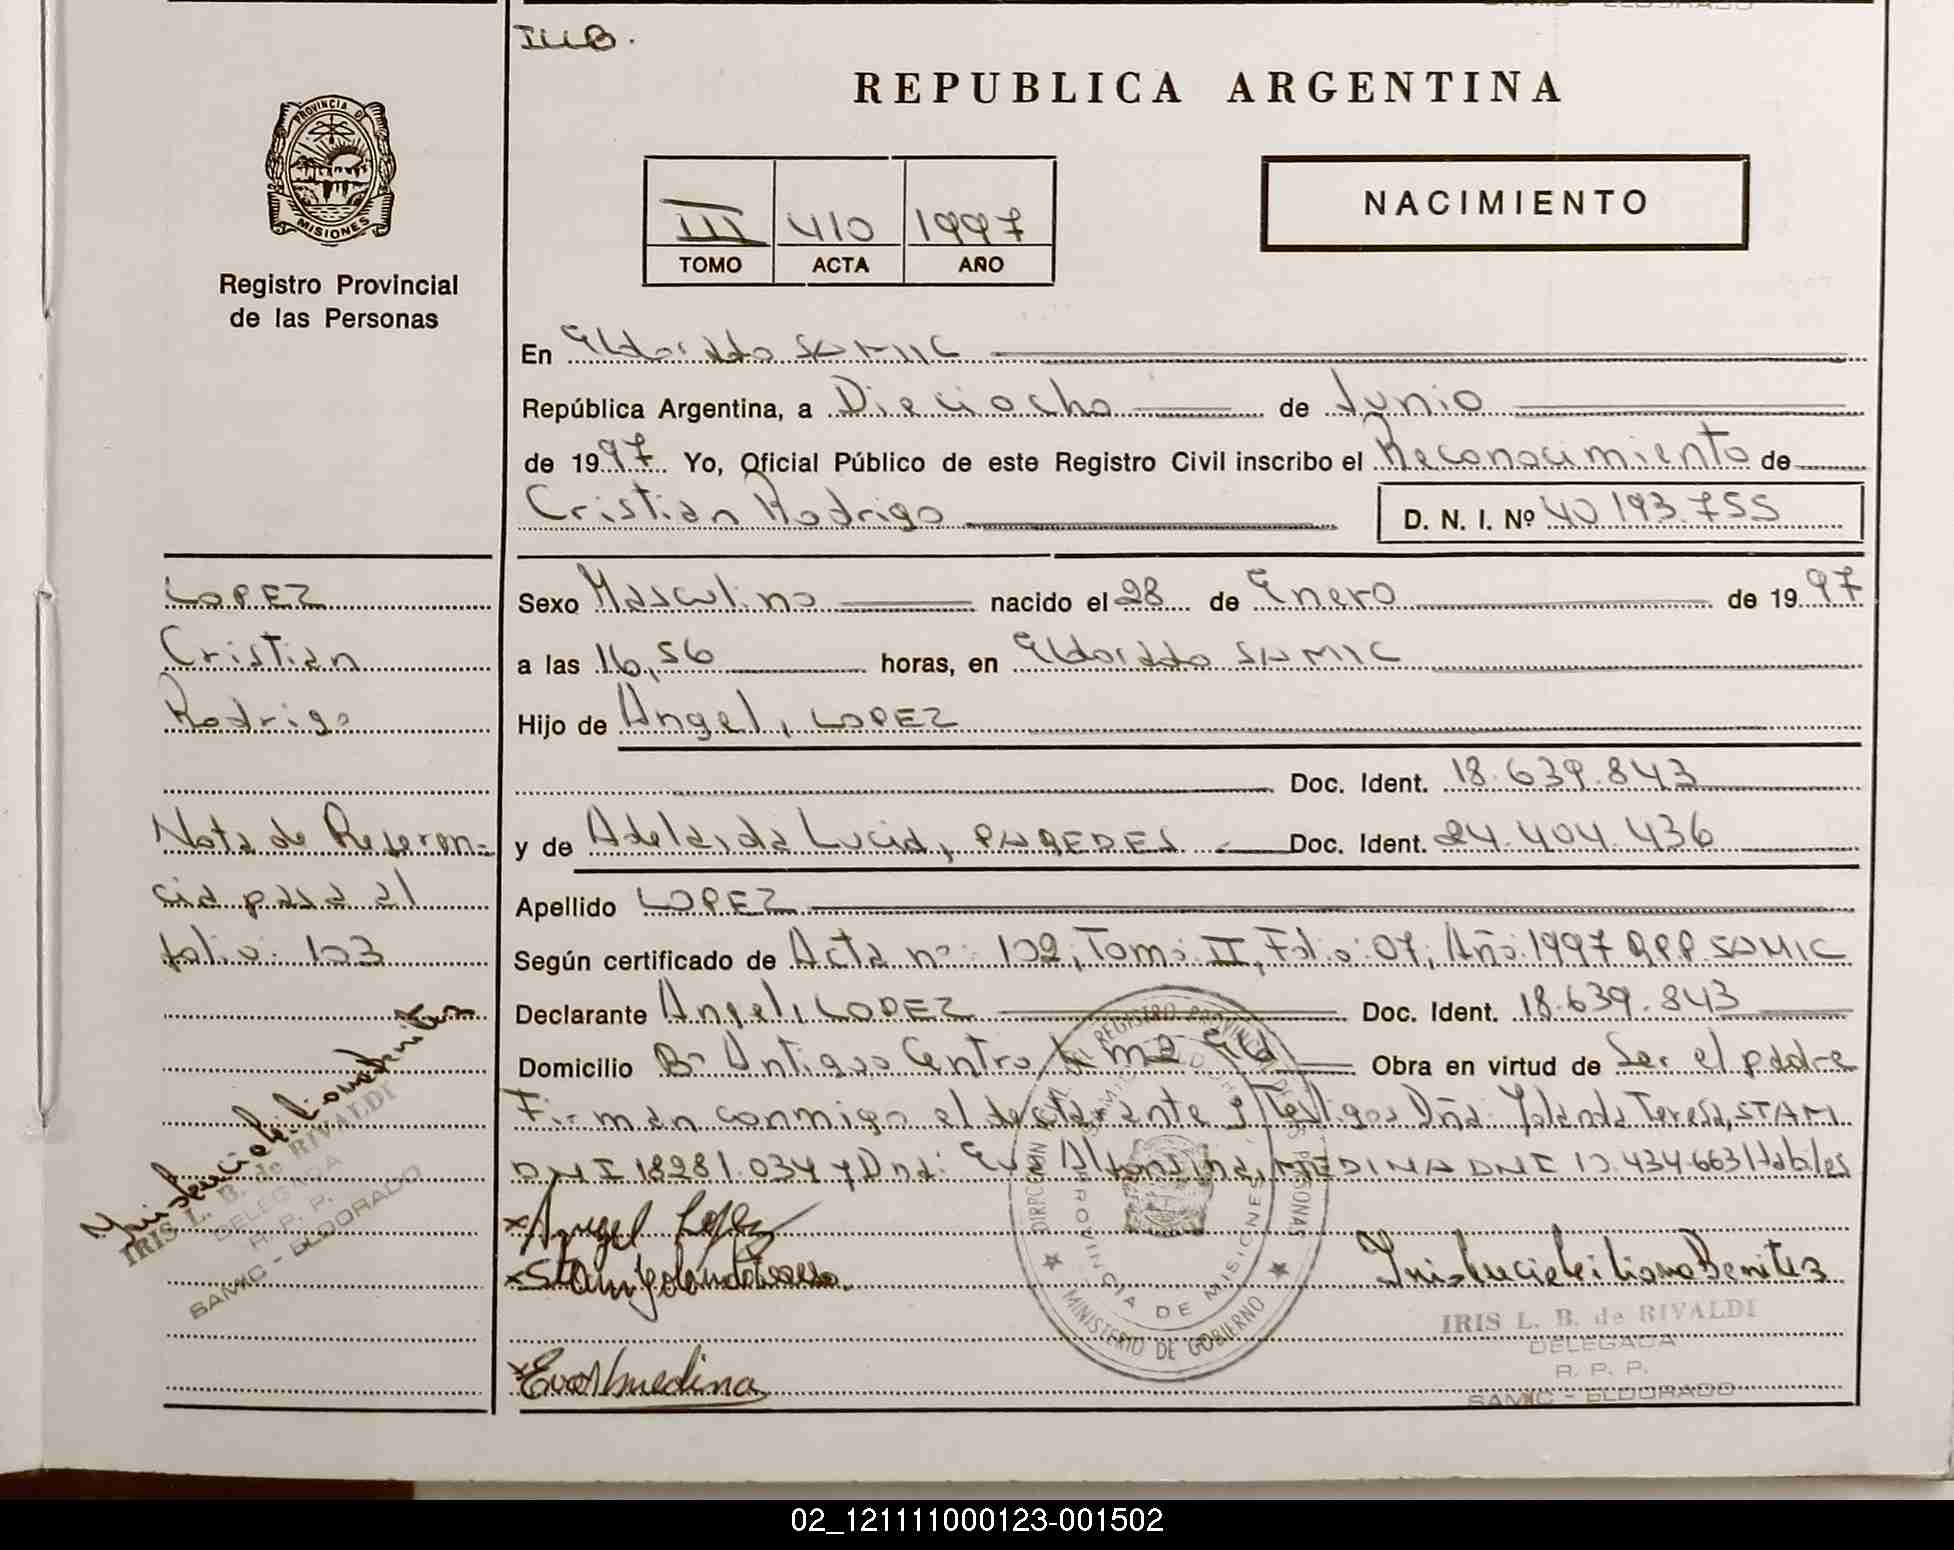 SAMIC - ELDORADO
ILLB.
REPUBLICA ARGENTINA
PROVINCIA DE
MISIONES
Registro Provincial
de las Personas
III 410 1997
TOMO ACTA AÑO
NACIMIENTO
En Eldorado SAMIC
República Argentina, a Dieciocho de Junio
de 1997 Yo, Oficial Público de este Registro Civil inscribo el Reconocimiento de
Cristian Rodrigo D. N. I. Nº 40 193.755
LOPEZ
Cristian
Rodrigo
Nota de Referen=
cia pasa al
folio: 103
Sexo Masculino nacido el 28 de Enero de 1997
a las 16,56 horas, en Eldorado SAMIC
Hijo de Angel, LOPEZ
Doc. Ident. 18.639.843
y de Adelaida Lucia, PAREDES Doc. Ident. 24.404.436
Apellido LOPEZ
Según certificado de Acta nº: 102, Tomo: II, Folio: 07, Año: 1997 R.P.P. SAMIC
Declarante Angel, LOPEZ Doc. Ident. 18.639.843
Domicilio Bº Antiguo Centro Km 2 Eld Obra en virtud de Ser el padre
Firman conmigo el declarante y testigos Dña: Yolanda Teresa, STAM
DNI 18281.034 y Dña: Eva Alfonsina, MEDINA DNI 10.434.663 Hábiles
Angel Lopez
Stam Yolanda Teresa
Eva A medina
DIRECCION GRAL. DEL REGISTRO PROVINCIAL DE LAS PERSONAS
SAMIC ELDORADO
PROVINCIA DE MISIONES
MINISTERIO DE GOBIERNO
IRIS L. B. de RIVALDI
DELEGADA
R. P. P.
SAMIC - ELDORADO
IRIS L. B. de RIVALDI
DELEGADA
R. P. P.
SAMIC - ELDORADO
02_121111000123-001502